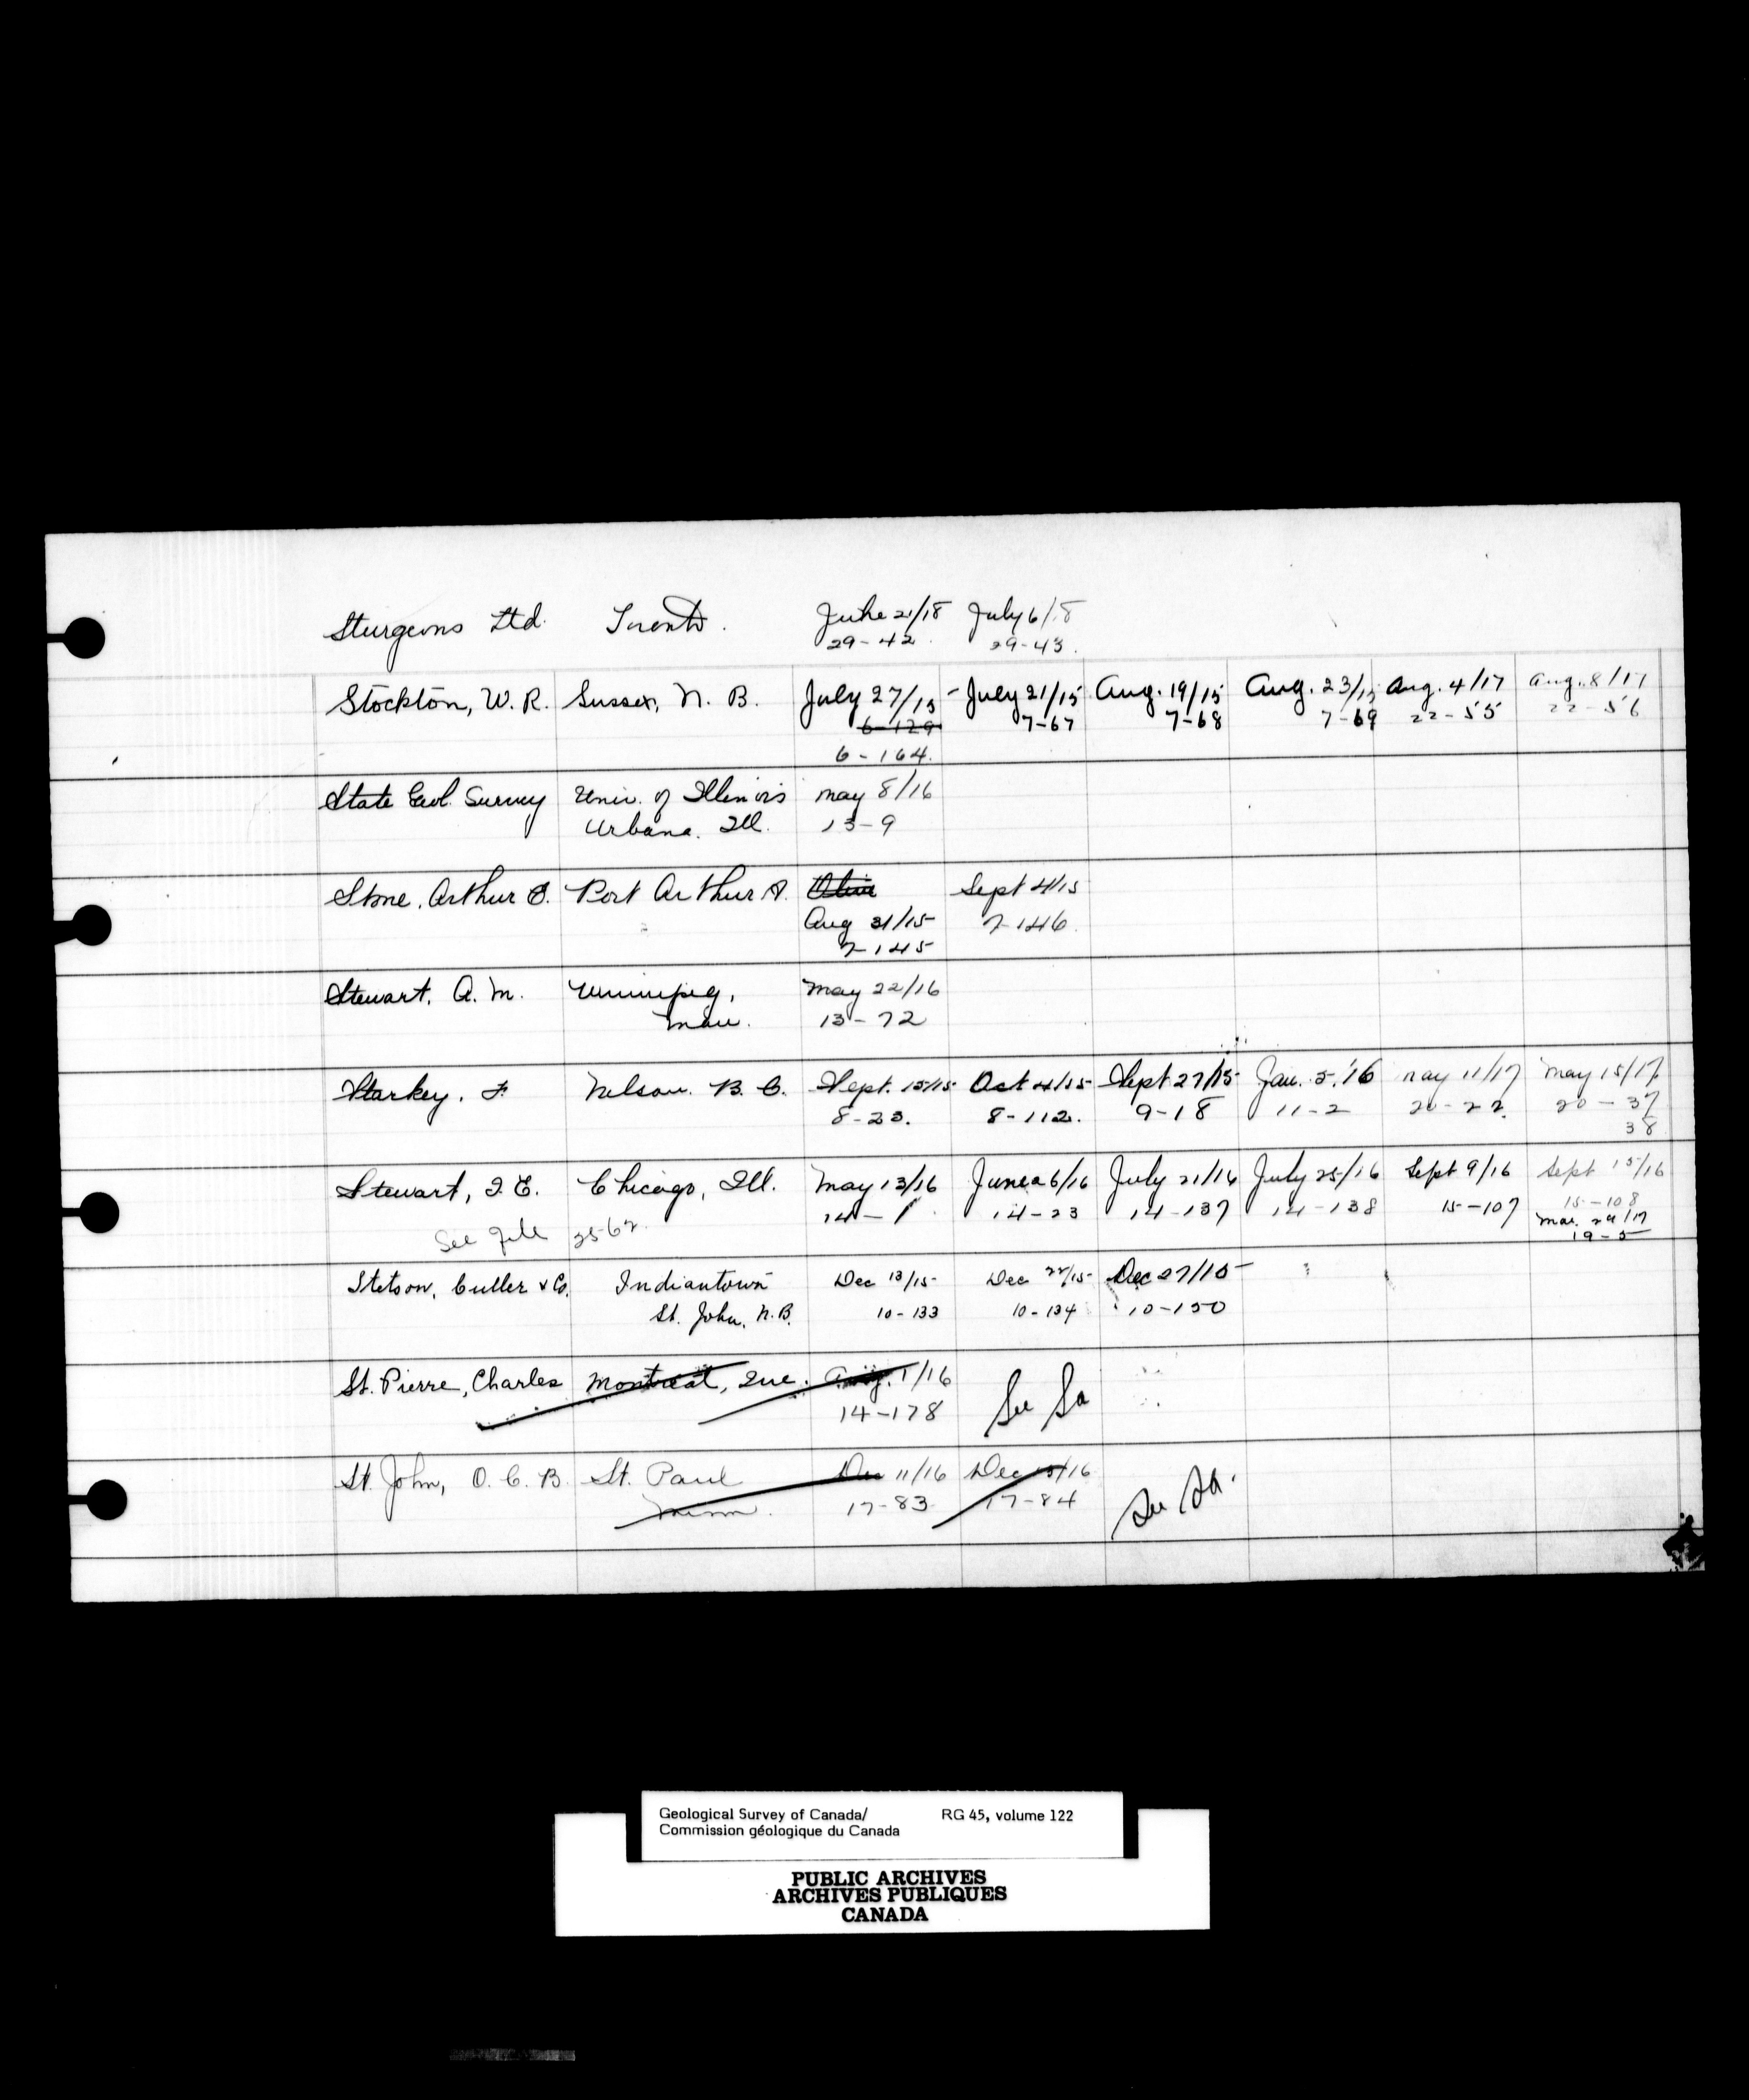 Sturgeons Ltd. Toronto. June 21/18 July 6/18
29-42. 29-43.
Stockton, W. R. Sussex, N. B. July 27/15 - July 21/15 Aug. 19/15 Aug. 23/15 Aug. 4/17 Aug. 8/17
6-129 7-67 7-68 7-69 22-55 22-56
6-164.
State Geol. Survey Univ. of Illinois May 8/16
Urbana. Ill. 13-9
Stone, Arthur Port Arthur Sept 4/15
Aug 31/15 7-146
7-145
Stewart, A. M. Winnipeg, May 22/16
Man. 13-72
Starkey, F. Nelson. B. C. Sept. 15/15 Oct 4/15 Sept 27/15 Jan. 5/16 May 11/17 May 15/17
8-23. 8-112. 9-18 11-2 20-22. 20-37
38
Stewart, J. E. Chicago, Ill. May 13/16 June 6/16 July 21/16 July 25/16 Sept 9/16 Sept 15/16
14-1 14-23 14-137 14-138 15-107 15-108
See File 25-62. Mar. 29/17
19-5
Stetson, Cutler & Co. Indiantown Dec 13/15 Dec 22/15 Dec 27/15
St. John, N.B. 10-133 10-134 10-150
St. Pierre, Charles Montreal, Que. Aug. 1/16 See Sa
14-178
St. John, O. C. B. St. Paul Dec 11/16 Dec 15/16 See Sa.
Minn. 17-83 17-84
Geological Survey of Canada/ RG 45, volume 122
Commission géologique du Canada
PUBLIC ARCHIVES
ARCHIVES PUBLIQUES
CANADA